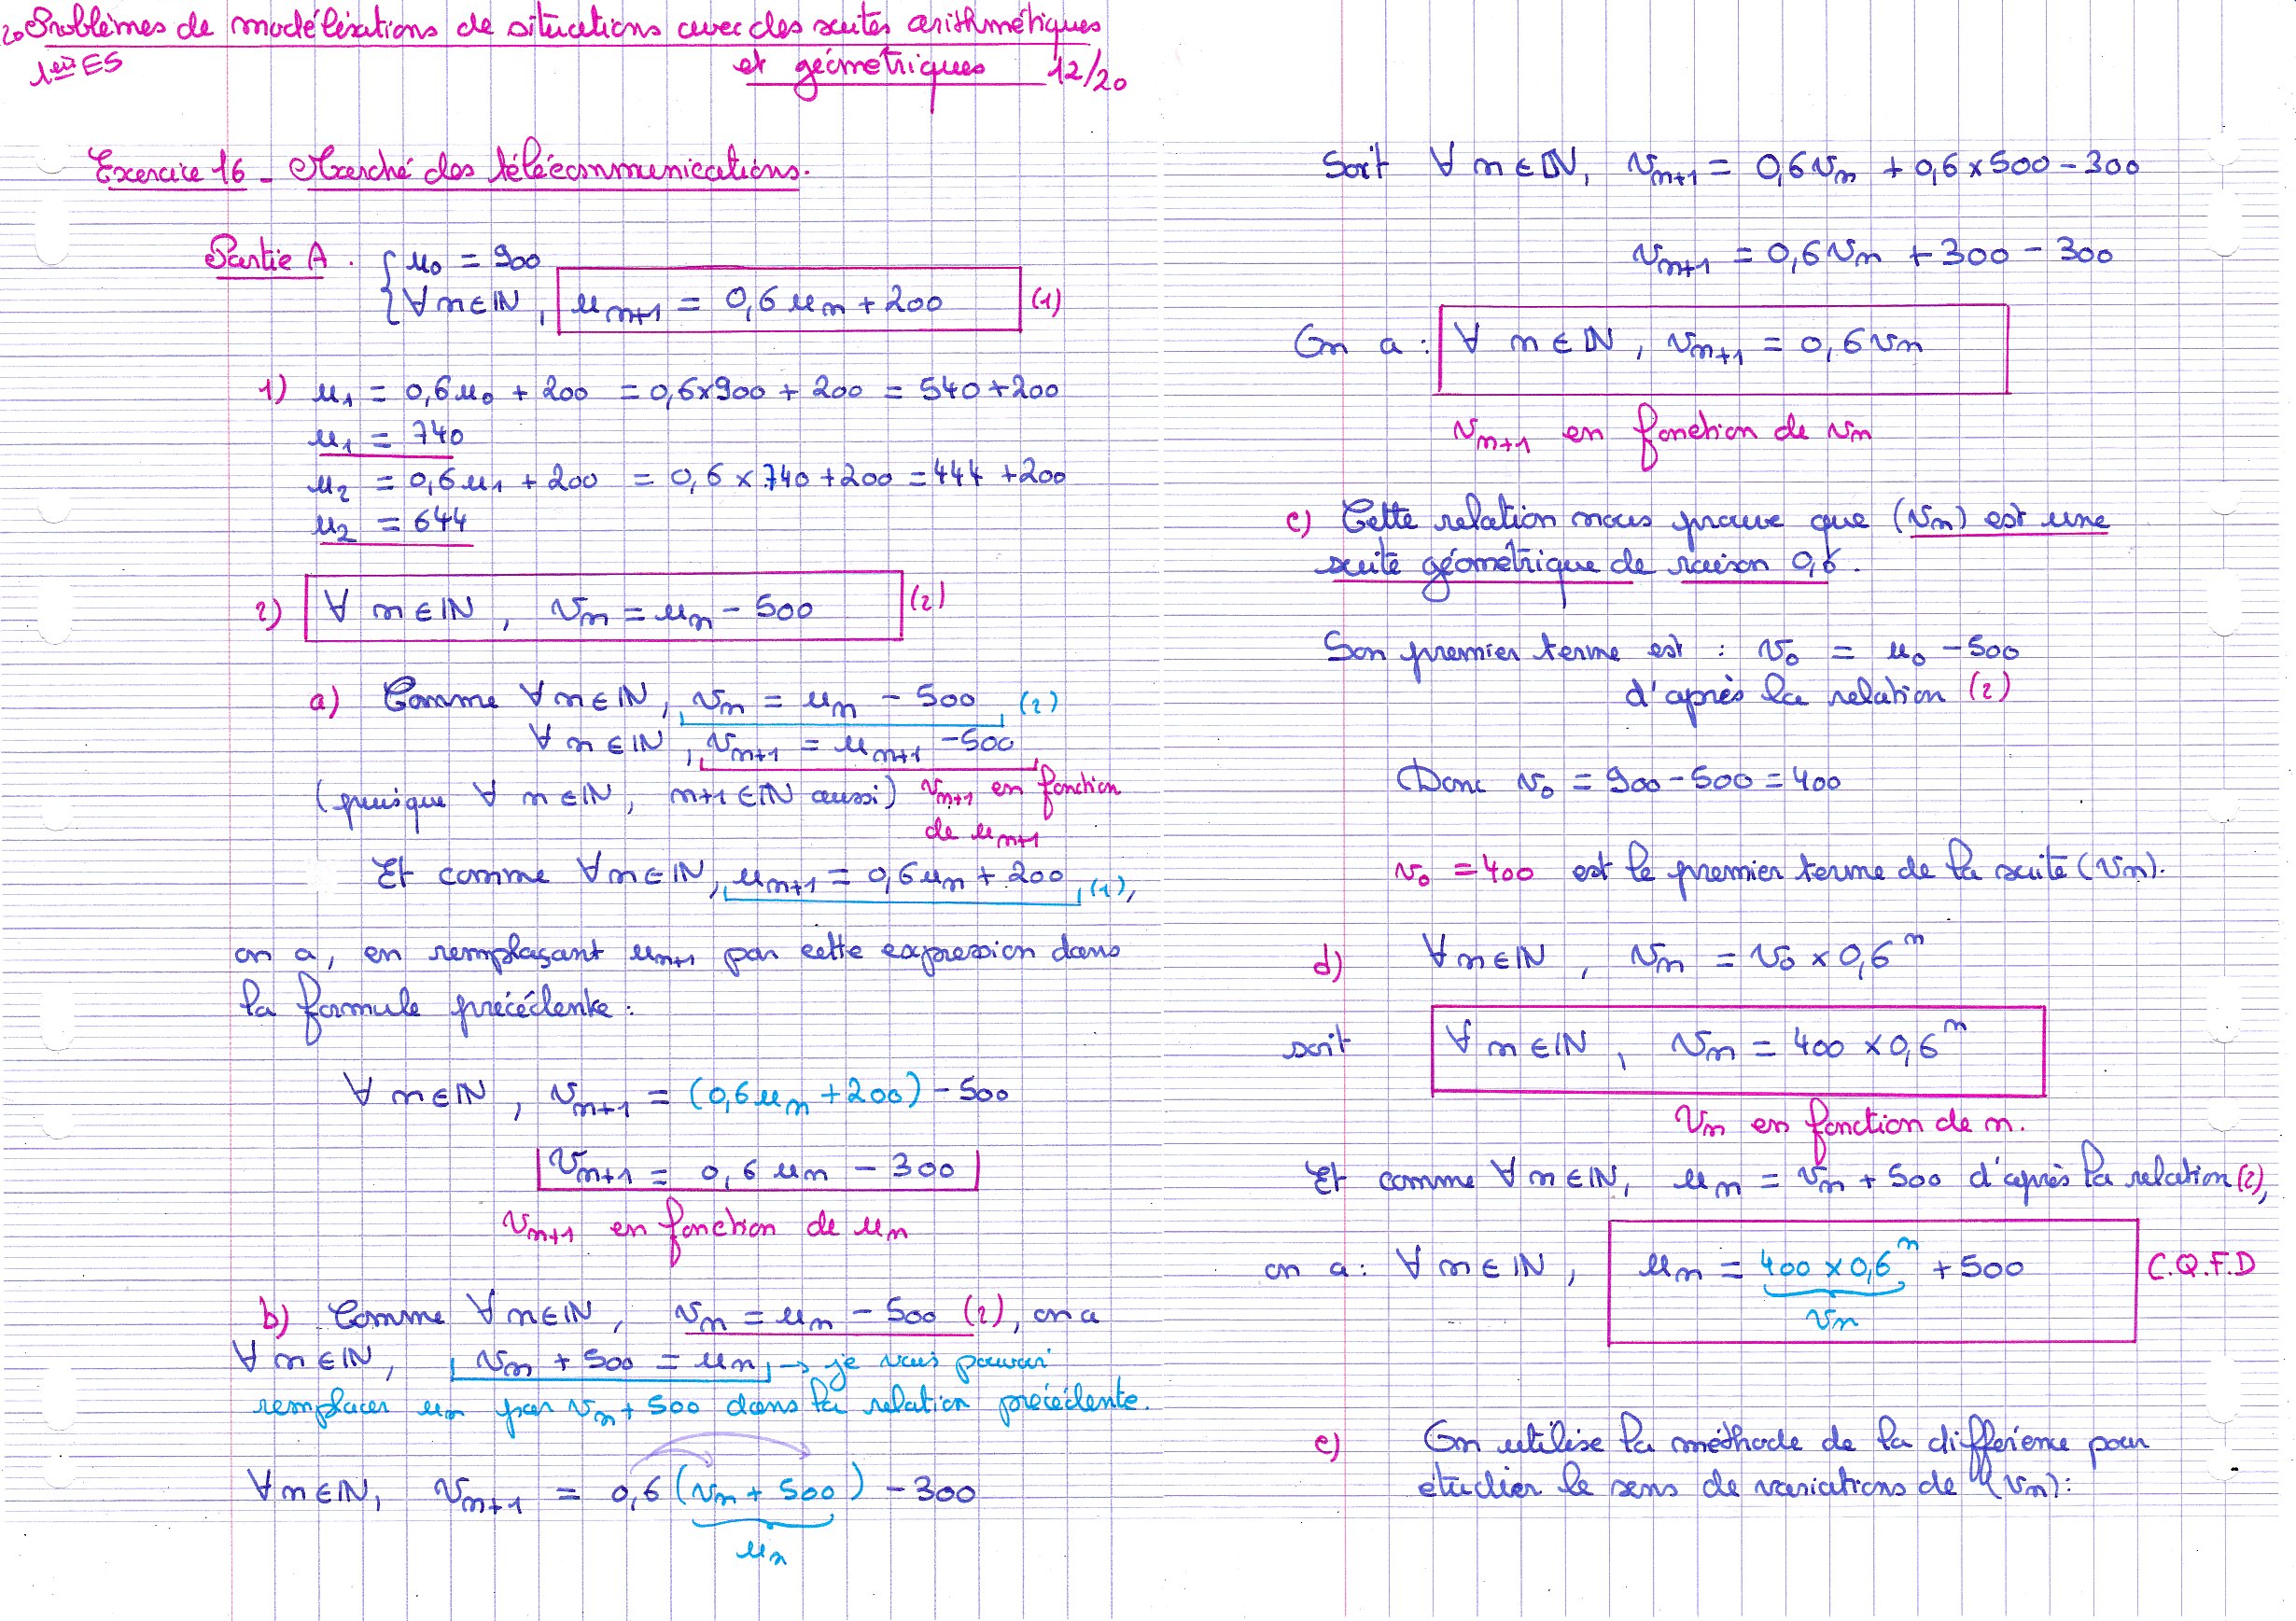 20 Problèmes de modélisations de situations avec des suites arithmétiques
1ère ES et géométriques 12/20
Exercice 16 - Marché des télécommunications.
Partie A. { u0 = 900
{ ∀ n ∈ ℕ, un+1 = 0,6 un + 200 (1)
1) u1 = 0,6 u0 + 200 = 0,6 × 900 + 200 = 540 + 200
u1 = 740
u2 = 0,6 u1 + 200 = 0,6 × 740 + 200 = 444 + 200
u2 = 644
2) ∀ n ∈ ℕ, vn = un - 500 (2)
a) Comme ∀ n ∈ ℕ, vn = un - 500 (2)
∀ n ∈ ℕ, vn+1 = un+1 - 500
(puisque ∀ n ∈ ℕ, n+1 ∈ ℕ aussi) vn+1 en fonction
de un+1
Et comme ∀ n ∈ ℕ, un+1 = 0,6 un + 200 (1),
on a, en remplaçant un+1 par cette expression dans
la formule précédente :
∀ n ∈ ℕ, vn+1 = (0,6 un + 200) - 500
vn+1 = 0,6 un - 300
vn+1 en fonction de un
b) Comme ∀ n ∈ ℕ, vn = un - 500 (2), on a
∀ n ∈ ℕ, vn + 500 = un → je vais pouvoir
remplacer un par vn + 500 dans la relation précédente.
∀ n ∈ ℕ, vn+1 = 0,6 (vn + 500) - 300
un
Soit ∀ n ∈ ℕ, vn+1 = 0,6 vn + 0,6 × 500 - 300
vn+1 = 0,6 vn + 300 - 300
On a : ∀ n ∈ ℕ, vn+1 = 0,6 vn
vn+1 en fonction de vn
c) Cette relation nous prouve que (vn) est une
suite géométrique de raison 0,6.
Son premier terme est : v0 = u0 - 500
d'après la relation (2)
Donc v0 = 900 - 500 = 400
v0 = 400 est le premier terme de la suite (vn).
d) ∀ n ∈ ℕ, vn = v0 × 0,6^n
soit ∀ n ∈ ℕ, vn = 400 × 0,6^n
vn en fonction de n.
Et comme ∀ n ∈ ℕ, un = vn + 500 d'après la relation (2),
on a : ∀ n ∈ ℕ, un = 400 × 0,6^n + 500 C.Q.F.D
vn
e) On utilise la méthode de la différence pour
étudier le sens de variations de (vn) :